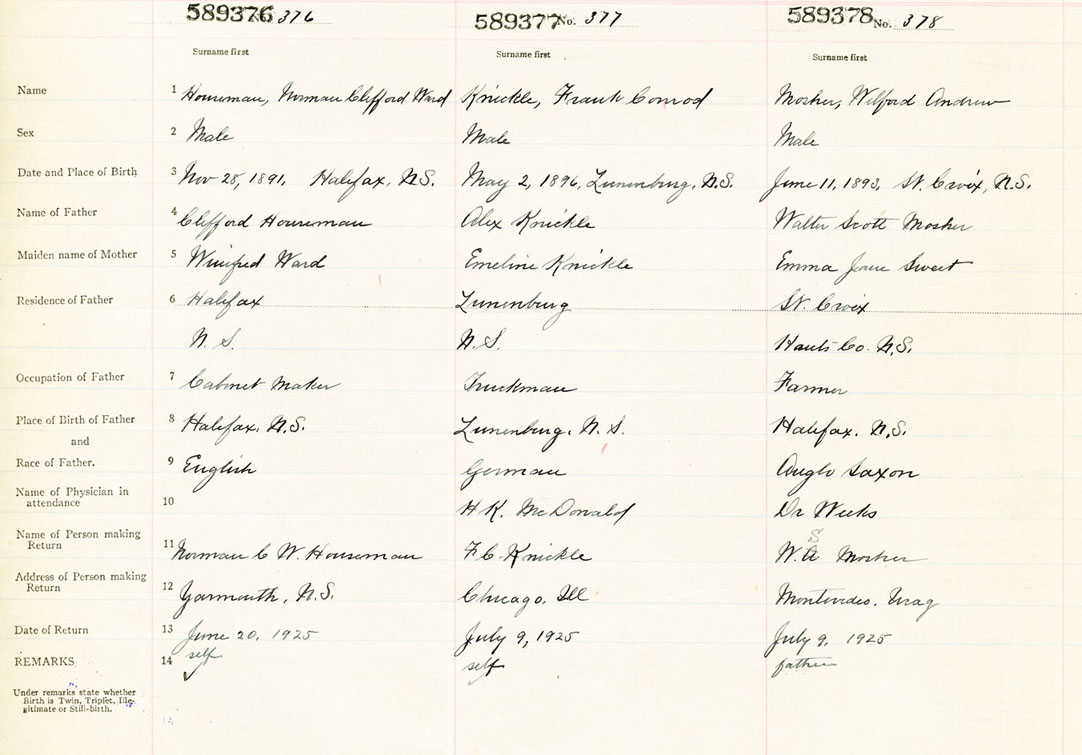 589376 No. 376 589377 No. 377 589378 No. 378
Surname first Surname first Surname first
Name 1 Houseman, Norman Clifford Ward Knickle, Frank Conrod Mosher, Wilford Andrew
Sex 2 Male Male Male
Date and Place of Birth 3 Nov 28, 1891, Halifax, N.S. May 2, 1896, Lunenburg, N.S. June 11, 1893, St. Croix, N.S.
Name of Father 4 Clifford Houseman Alex Knickle Walter Scott Mosher
Maiden name of Mother 5 Winifred Ward Emeline Knickle Emma Jane Sweet
Residence of Father 6 Halifax Lunenburg St. Croix
N. S. N. S. Hants Co. N.S.
Occupation of Father 7 Cabinet Maker Truckman Farmer
Place of Birth of Father 8 Halifax, N.S. Lunenburg, N. S. Halifax, N.S.
and
Race of Father. 9 English German Anglo Saxon
Name of Physician in
attendance 10 H K. McDonald Dr Weeks
Name of Person making
Return 11 Norman C W. Houseman F. C. Knickle W. S Mosher
Address of Person making
Return 12 Yarmouth, N.S. Chicago, Ill Montevideo. Urag
Date of Return 13 June 20, 1925 July 9, 1925 July 9, 1925
REMARKS 14 self self father
Under remarks state whether
Birth is Twin, Triplet, Ille-
gitimate or Still-birth.